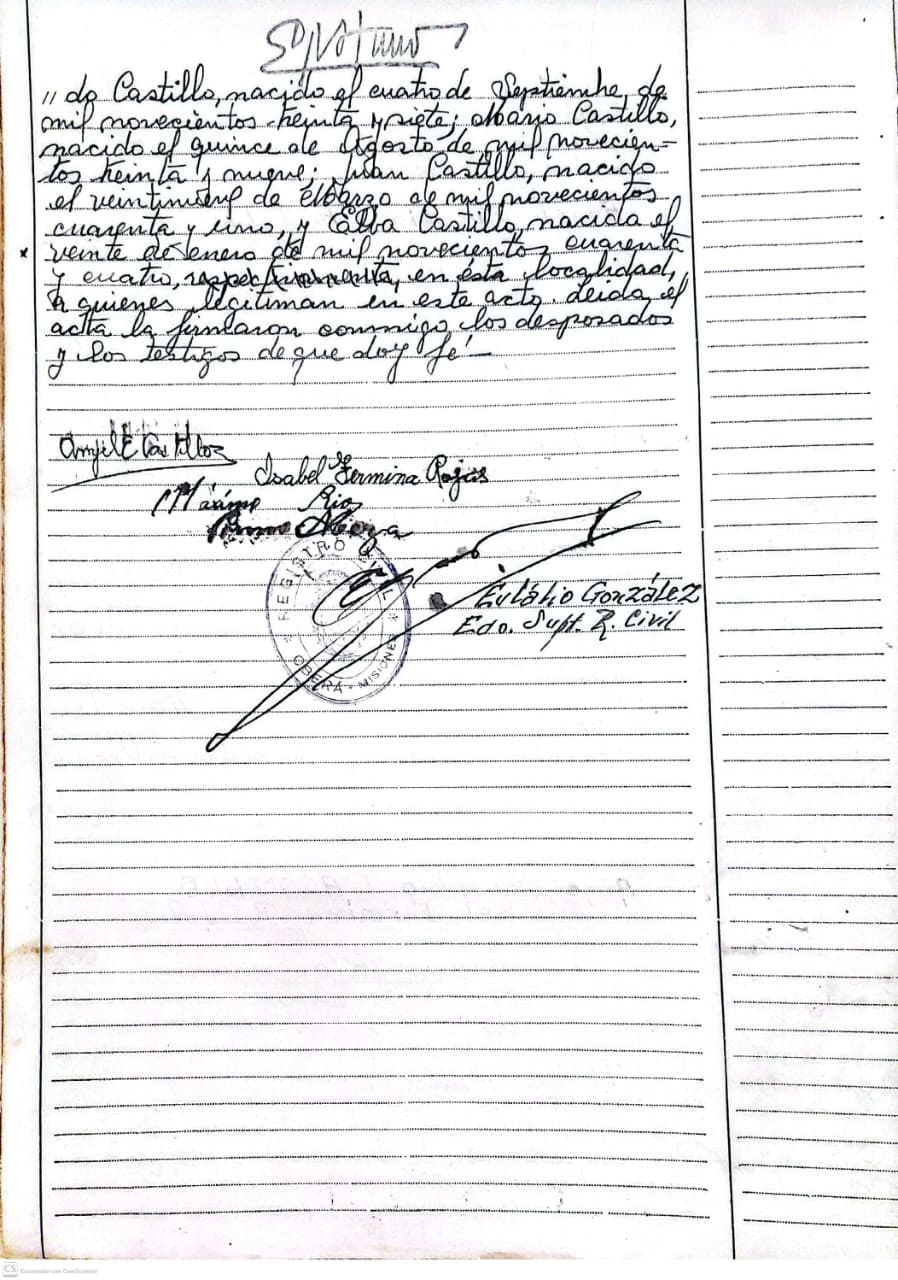 // do Castillo, nacido el cuatro de Septiembre de
mil novecientos treinta y siete; Mario Castillo,
nacido el quince de Agosto de mil novecien-
tos treinta y nueve; Juan Castillo, nacido
el veintinueve de Marzo de mil novecientos
cuarenta y uno, y Elba Castillo, nacida el
veinte de enero de mil novecientos cuarenta
y cuatro, respectivamente, en esta localidad,
a quienes legitiman en este acto. Leida el
acta la firmaron conmigo, los desposados
y los testigos de que doy fé.—
Angel E Castillo
Isabel Fermina Rojas
Máximo Rios
Mora
REGISTRO CIVIL
OBERA - MISIONES
Eulálio González
Edo. Supt. R. Civil
CS Escaneado con CamScanner